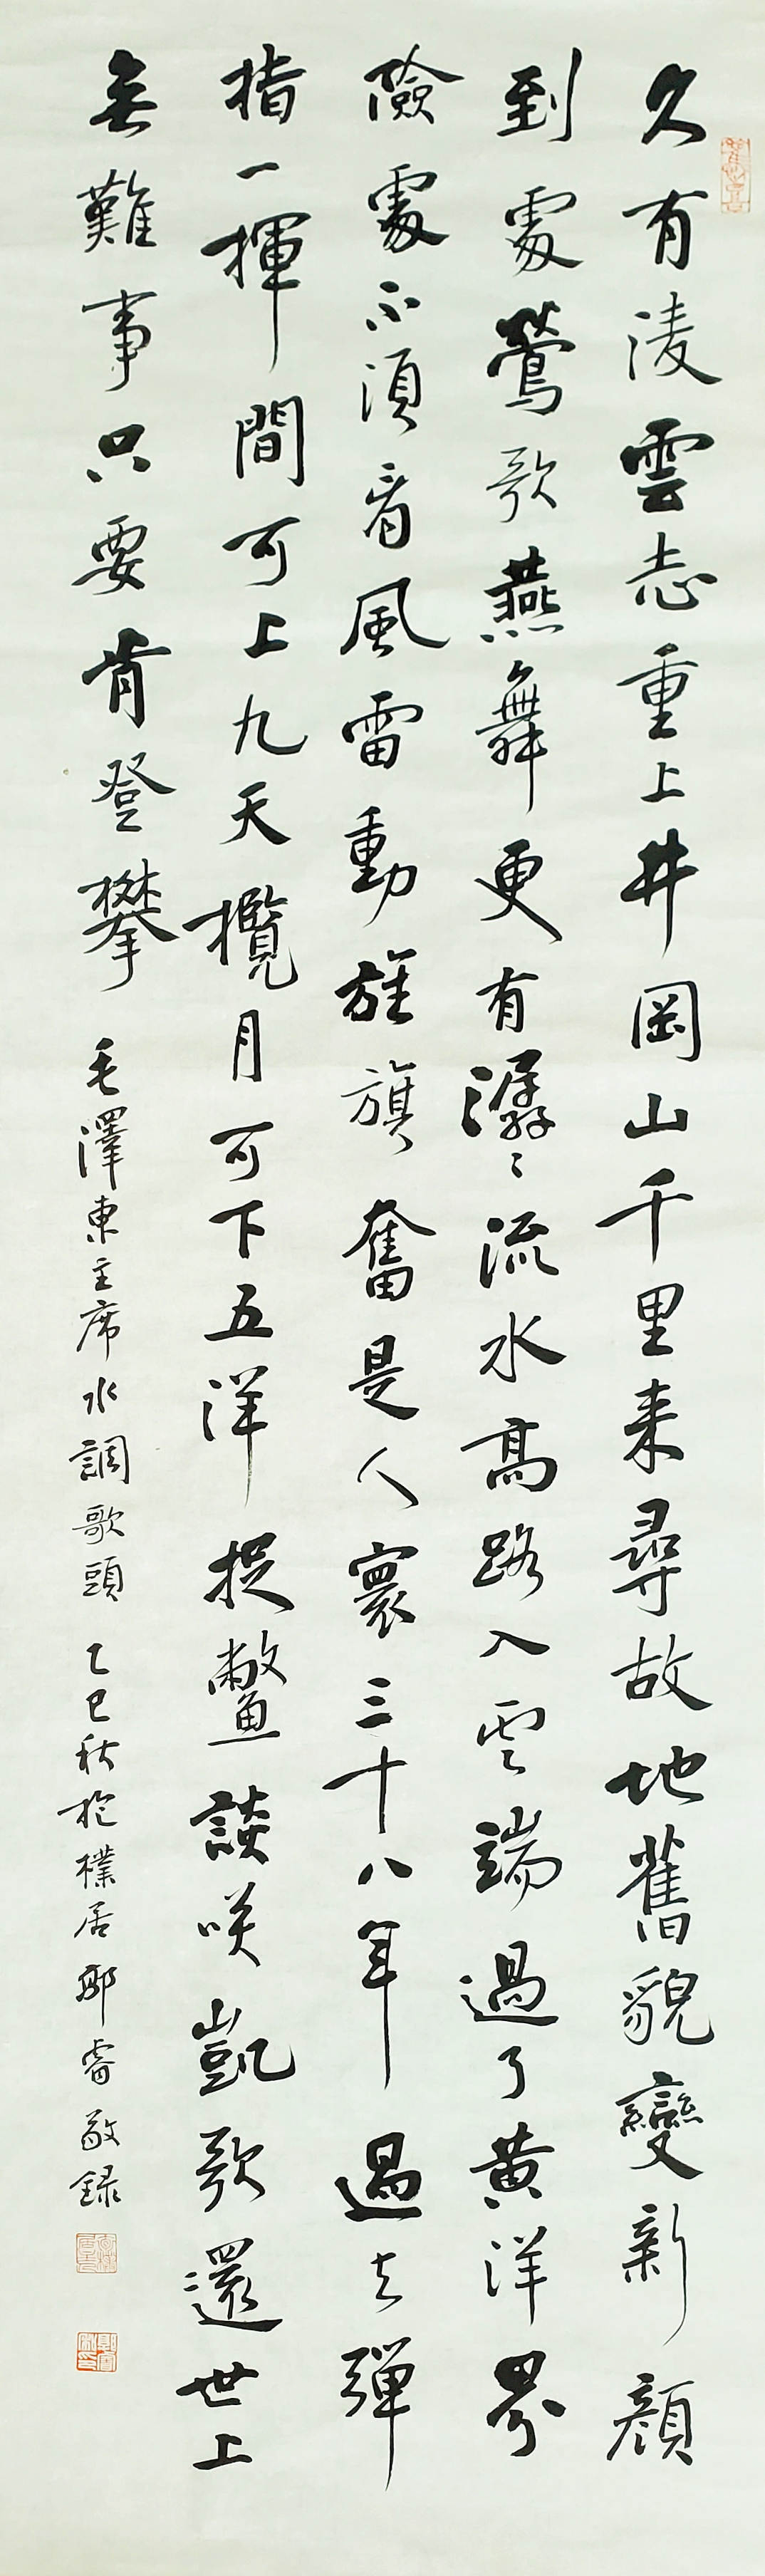 久有淩雲志重上井岡山千里来尋故地舊貌變新顔
到處鶯歌燕舞更有潺〻流水髙路入雲端過了黄洋界
險處不須看風雷動旌旗奮是人寰三十八年過去彈
指一揮間可上九天攬月可下五洋捉鱉談咲凱歌還世上
無難事只要肯登攀 毛澤東主席水調歌頭 乙巳秋於樸居 睿敬録